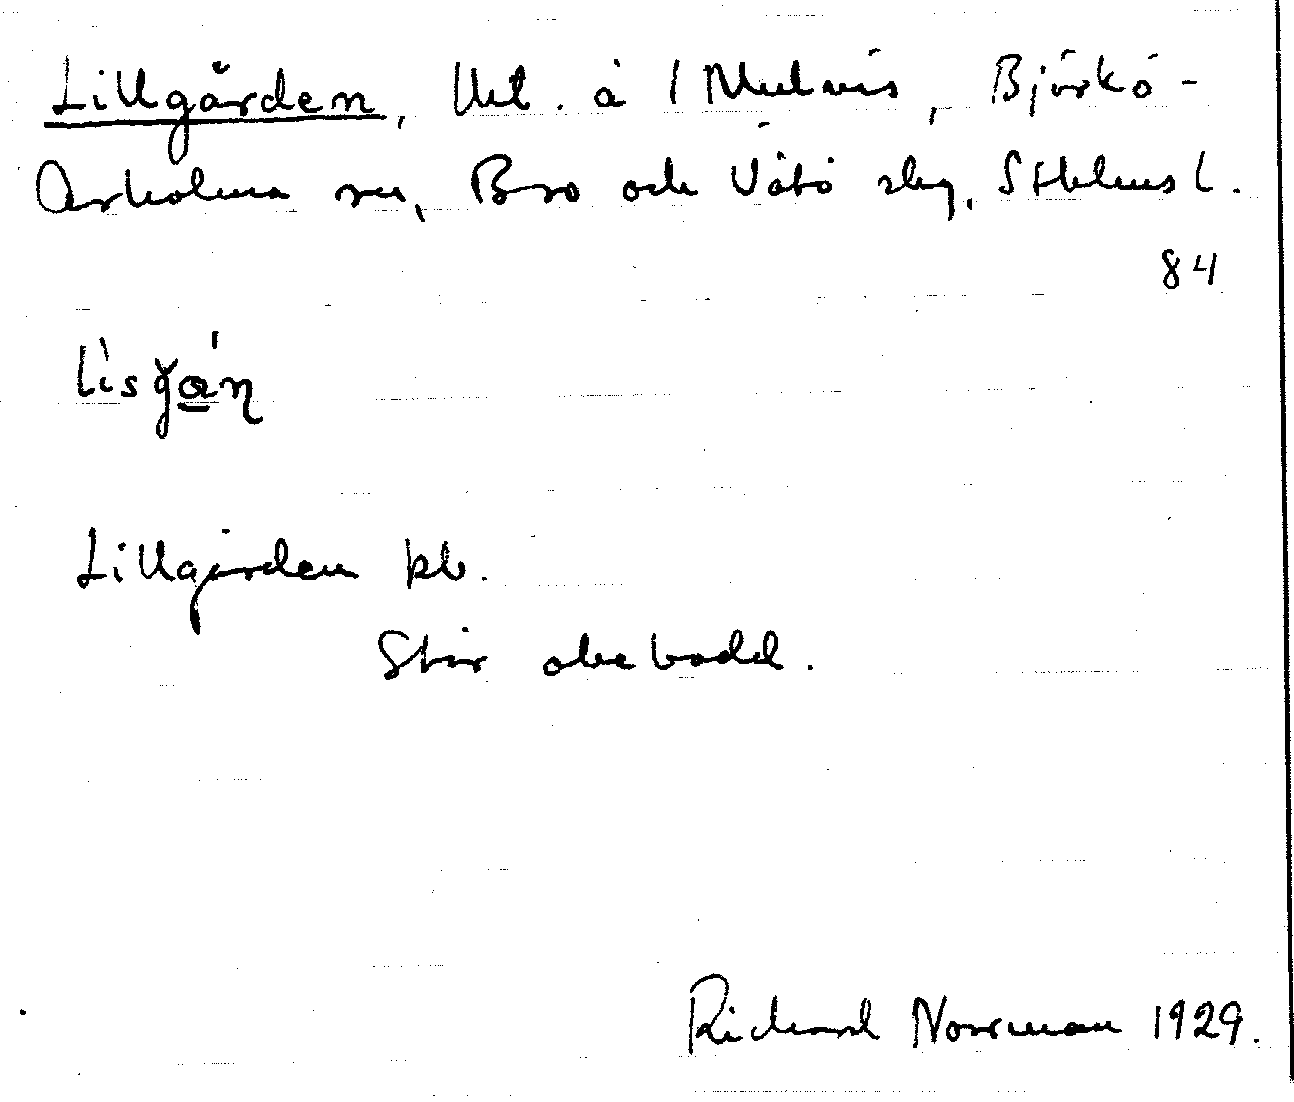 Lillgården, Utl. å 1 Mulnäs, Björkö-
Arholma sn, Bro och Vätö skg, Sthlms l.
84
Lillgården kb.
Står obebodd.
Richard Norrman 1929.